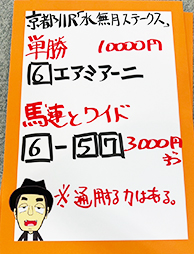 京都11R「水無月ステークス」
単勝 10000円
6 エアミアーニ
馬連とワイド
6-57 3000円
ずつ
※通用する力はある。